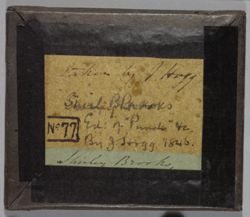 Taken by J. Hogg
Shirley Brooks
Ed. of "Punch" &c.
No. 77
By J. Hogg 1846.
Shirley Brooks